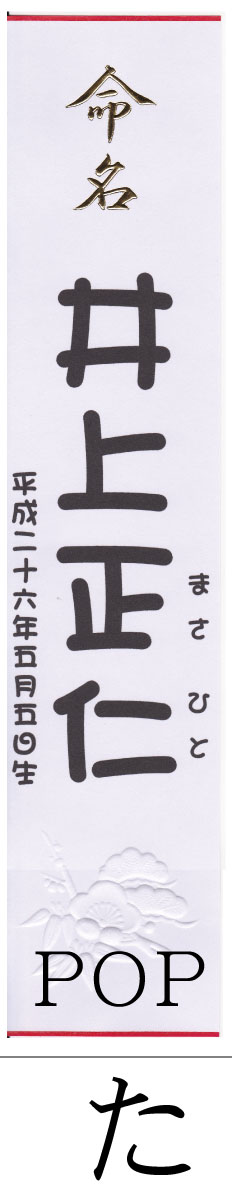 命名
井上正仁
まさ ひと
平成二十六年五月五日生
POP
た